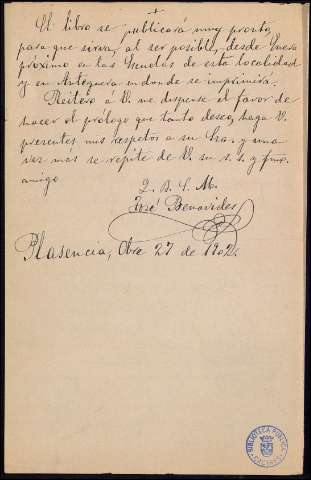 El libro se publicará muy pronto,
para que sirva, al ser posible, desde Enero
próximo en las Escuelas de esta localidad
y en Antequera en donde se imprimirá.
Reitero á V. me dispense el favor de
hacer el prólogo que tanto deseo, haga V.
presentes mis respetos a su Sra. y una
vez mas se repite de V. su s. s. y
amigo
Q. B. S. M.
José Benavides
Plasencia, Obre 27 de 1902.
BIBLIOTECA PUBLICA
CACERES